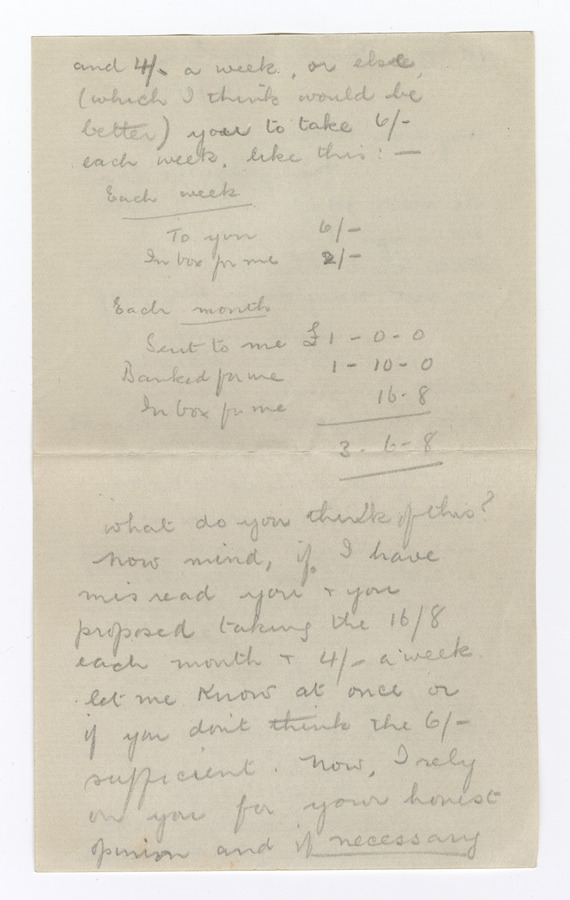 and 4/- a week, or else,
(which I think would be
better) you to take 6/-
each week, like this: —
Each week
To you 6/-
In box for me 2/-
Each month
Sent to me £1 - 0 - 0
Banked for me 1 - 10 - 0
In box for me 16 - 8
3 - 6 - 8
What do you think of this?
Now mind, if I have
misread you + you
proposed taking the 16/8
each month + 4/- a week
let me know at once or
if you don't think the 6/-
sufficient. Now, I rely
on you for your honest
opinion and if necessary